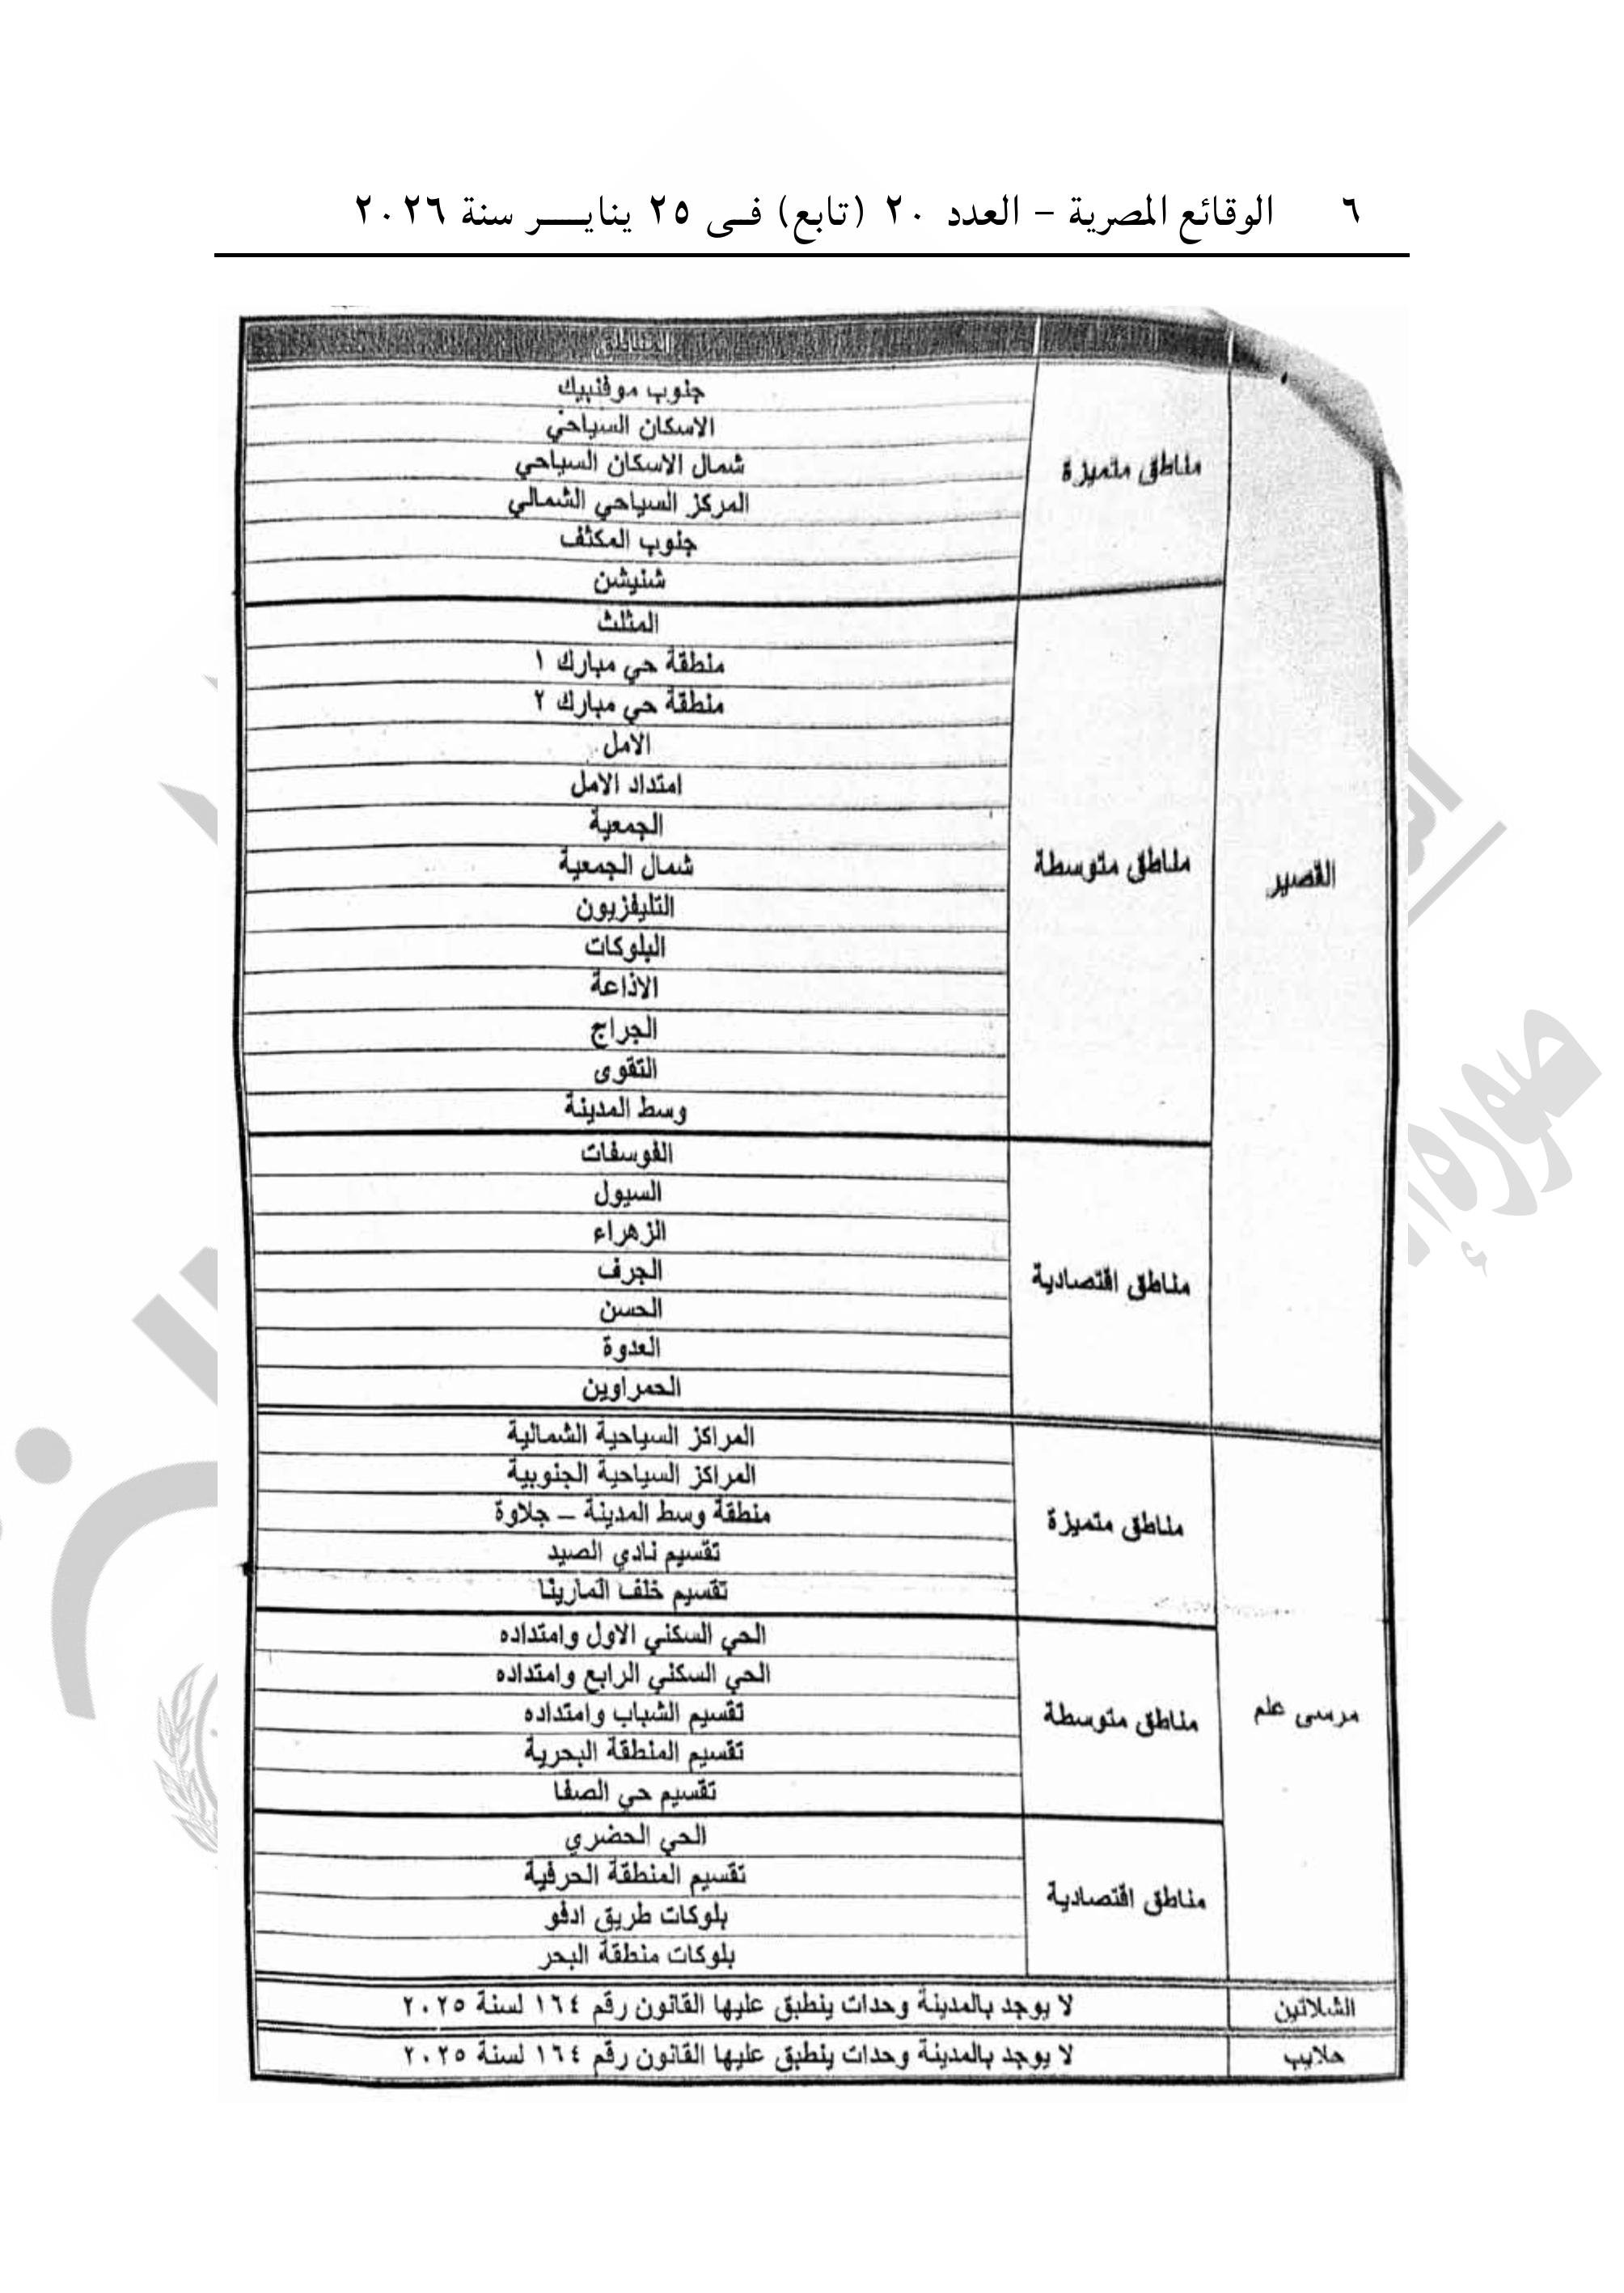 ٦ الوقائع المصرية – العدد ٢٠ (تابع) فى ٢٥ يناير سنة ٢٠٢٦
المناطق
القصير
مناطق متميزة
جنوب موفنبيك
الاسكان السياحي
شمال الاسكان السياحي
المركز السياحي الشمالي
جنوب المكثف
شنيشن
مناطق متوسطة
المثلث
منطقة حي مبارك ١
منطقة حي مبارك ٢
الامل
امتداد الامل
الجمعية
شمال الجمعية
التليفزيون
البلوكات
الاذاعة
الجراج
التقوى
وسط المدينة
مناطق اقتصادية
الفوسفات
السيول
الزهراء
الجرف
الحسن
العدوة
الحمراوين
مرسى علم
مناطق متميزة
المراكز السياحية الشمالية
المراكز السياحية الجنوبية
منطقة وسط المدينة – جلاوة
تقسيم نادي الصيد
تقسيم خلف المارينا
مناطق متوسطة
الحي السكني الاول وامتداده
الحي السكني الرابع وامتداده
تقسيم الشباب وامتداده
تقسيم المنطقة البحرية
تقسيم حي الصفا
مناطق اقتصادية
الحي الحضري
تقسيم المنطقة الحرفية
بلوكات طريق ادفو
بلوكات منطقة البحر
الشلاتين لا يوجد بالمدينة وحدات ينطبق عليها القانون رقم ١٦٤ لسنة ٢٠٢٥
حلايب لا يوجد بالمدينة وحدات ينطبق عليها القانون رقم ١٦٤ لسنة ٢٠٢٥